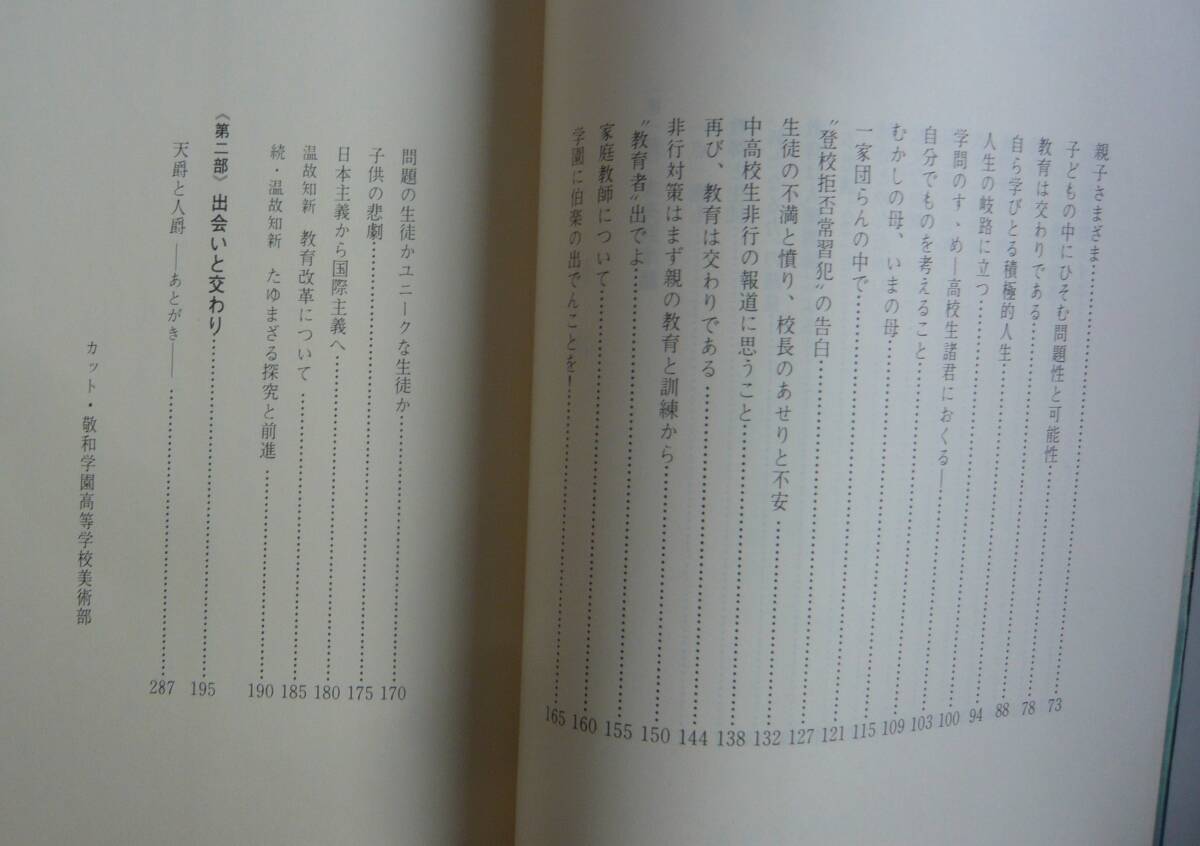 親子さまざま……73
子どもの中にひそむ問題性と可能性……78
教育は交わりである……88
自ら学びとる積極的人生……94
人生の岐路に立つ……100
学問のすゝめ―高校生諸君におくる―……103
自分でものを考えること……109
むかしの母、いまの母……115
一家団らんの中で……121
〝登校拒否常習犯〟の告白……127
生徒の不満と憤り、校長のあせりと不安……132
中高校生非行の報道に思うこと……138
再び、教育は交わりである……144
非行対策はまず親の教育と訓練から……150
〝教育者〟出でよ……155
家庭教師について……160
学園に伯楽の出でんことを!……165
問題の生徒かユニークな生徒か……170
子供の悲劇……175
日本主義から国際主義へ……180
温故知新 教育改革について……185
続・温故知新 たゆまざる探究と前進……190
《第二部》出会いと交わり……195
天爵と人爵――あとがき――……287
カット・敬和学園高等学校美術部